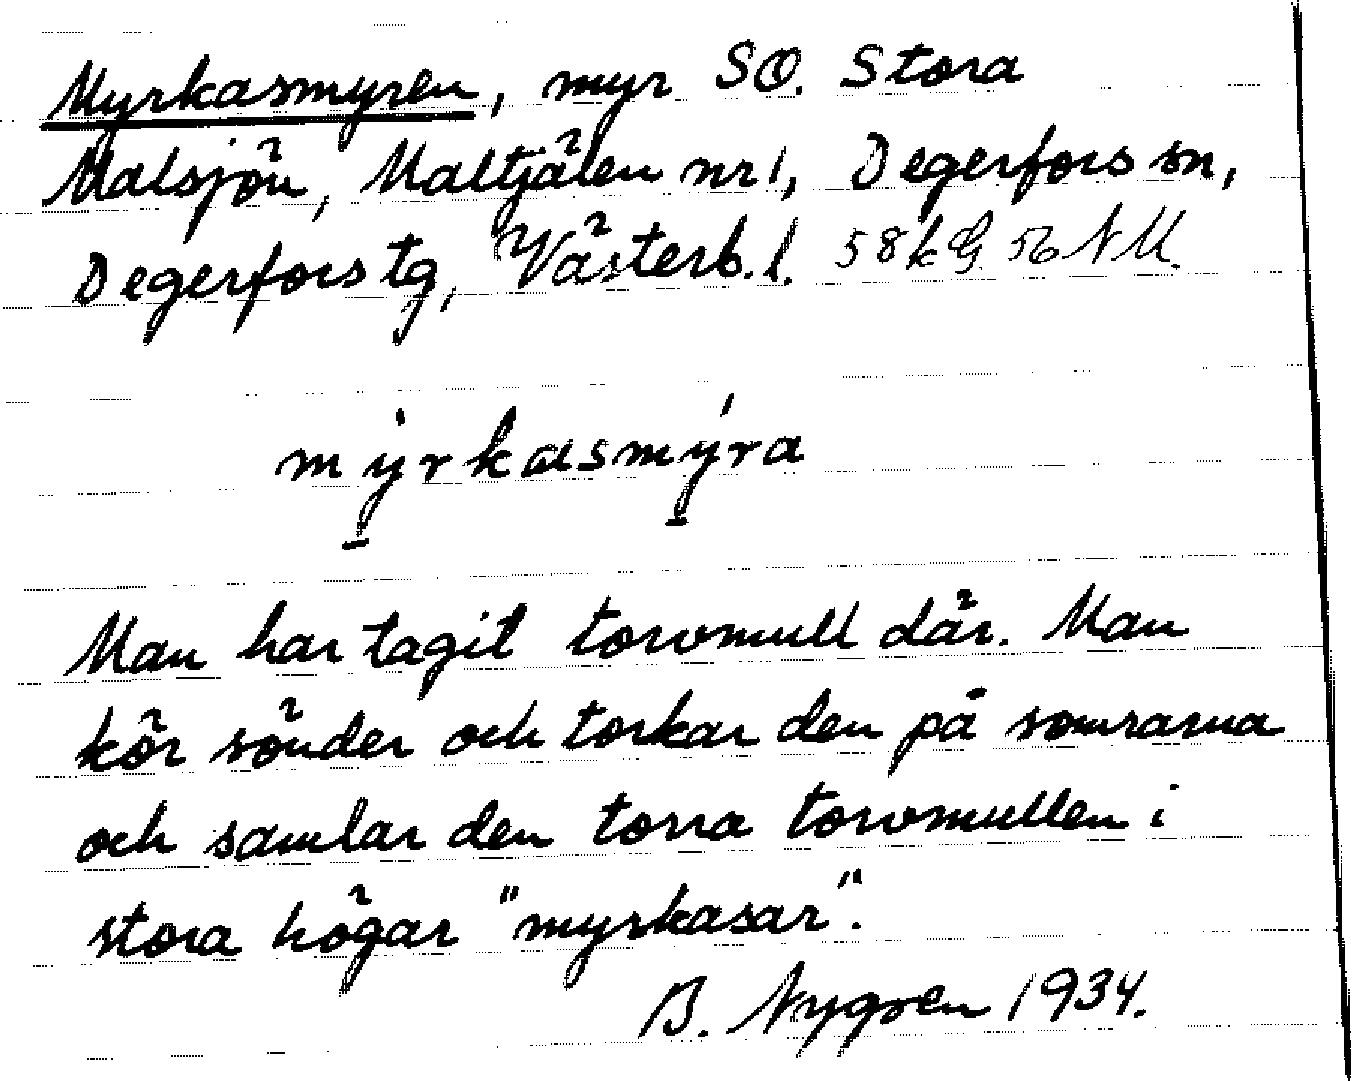 Myrkasmyren, myr SO. Stora
Malsjön, Maltjälen nr 1, Degerfors sn,
Degerfors tg, Västerb. l. 58kG 56 NM.
mýrkasmýra
Man har tagit torvmull där. Man
kör sönder och torkar den på somrarna
och samlar den torra torvmullen i
stora högar "myrkasar".
B. Nygren 1934.